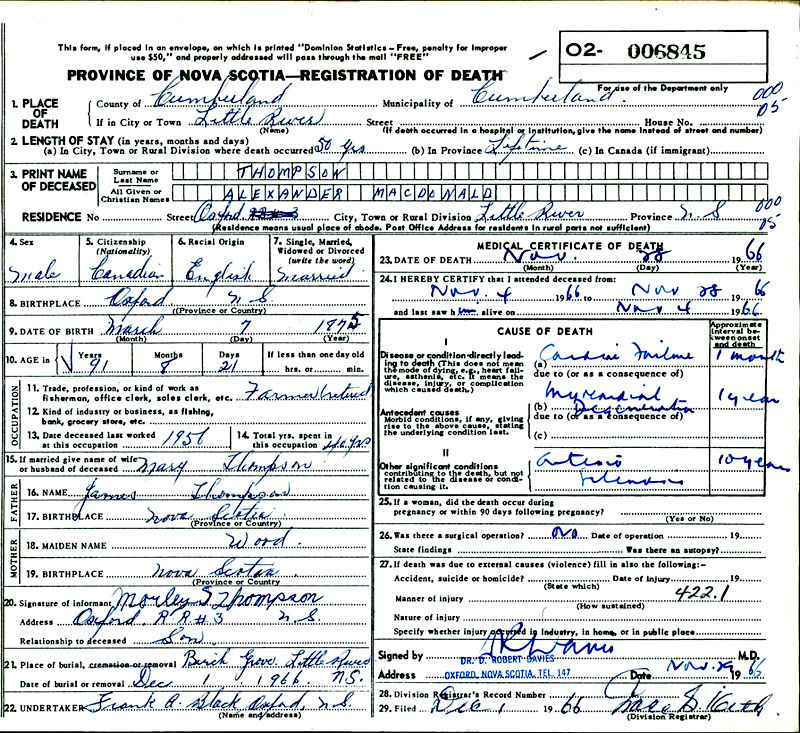 This form, if placed in an envelope, on which is printed "Dominion Statistics - Free, penalty for improper
use $50," and properly addressed will pass through the mail "FREE"
O2- 006845
PROVINCE OF NOVA SCOTIA—REGISTRATION OF DEATH
For use of the Department only
000
05
1. PLACE OF DEATH
County of Cumberland Municipality of Cumberland
If in City or Town Little River Street House No.
(Name) (If death occurred in a hospital or institution, give the name instead of street and number)
2. LENGTH OF STAY (in years, months and days)
(a) In City, Town or Rural Division where death occurred 50 yrs (b) In Province Lifetime (c) In Canada (if immigrant)
3. PRINT NAME OF DECEASED
Surname or Last Name THOMPSON
All Given or Christian Names ALEXANDER MACDONALD
000
05
RESIDENCE No Street Oxford City, Town or Rural Division Little River Province N.S
(Residence means usual place of abode. Post Office Address for residents in rural parts not sufficient)
4. Sex
Male
5. Citizenship
(Nationality)
Canadian
6. Racial Origin
English
7. Single, Married, Widowed or Divorced
(write the word)
Married
8. BIRTHPLACE Oxford N S
(Province or Country)
9. DATE OF BIRTH March 7 1875
(Month) (Day) (Year)
10. AGE in
Years 91
Months 8
Days 21
If less than one day old
hrs. or min.
OCCUPATION
11. Trade, profession, or kind of work as
fisherman, office clerk, sales clerk, etc. Farmer retired
12. Kind of industry or business, as fishing,
bank, grocery store, etc.
13. Date deceased last worked
at this occupation 1956
14. Total yrs. spent in
this occupation yrs
15. If married give name of wife
or husband of deceased Mary Thompson
FATHER
16. NAME James Thompson
17. BIRTHPLACE Nova Scotia
(Province or Country)
MOTHER
18. MAIDEN NAME Wood
19. BIRTHPLACE Nova Scotia
(Province or Country)
20. Signature of informant Morley S Thompson
Address Oxford R R #3 N S
Relationship to deceased Son
21. Place of burial, cremation or removal Birch Grove Little River
Date of burial or removal Dec 1 1966 N.S.
22. UNDERTAKER Frank A. Black Oxford, N.S.
(Name and address)
MEDICAL CERTIFICATE OF DEATH
23. DATE OF DEATH Nov. 28 1966
(Month) (Day) (Year)
24. I HEREBY CERTIFY that I attended deceased from:
Nov. 4 1966 to Nov 28 1966
and last saw him alive on Nov 4 1966
CAUSE OF DEATH
Approximate interval between onset and death
I
Disease or condition directly leading to death (This does not mean the mode of dying, e.g., heart failure, asthenia, etc. It means the disease, injury, or complication which caused death.)
(a) Cardiac Failure 1 month
due to (or as a consequence of)
Antecedent causes
Morbid conditions, if any, giving rise to the above cause, stating the underlying condition last.
(b) Myocardial Degeneration 1 year
due to (or as a consequence of)
(c)
II
Other significant conditions
contributing to the death, but not related to the disease or condition causing it.
Arterio Sclerosis 10 years
25. If a woman, did the death occur during
pregnancy or within 90 days following pregnancy?
(Yes or No)
26. Was there a surgical operation? No Date of operation 19
State findings Was there an autopsy?
27. If death was due to external causes (violence) fill in also the following:-
Accident, suicide or homicide? Date of injury 19
(State which)
Manner of injury 422.1
(How sustained)
Nature of injury
Specify whether injury occurred in industry, in home, or in public place
Signed by D R Davies M.D.
DR. D. ROBERT DAVIES
Address OXFORD, NOVA SCOTIA, TEL. 147 Date Nov. 29 1966
28. Division Registrar's Record Number
29. Filed Dec 1 1966
(Division Registrar)